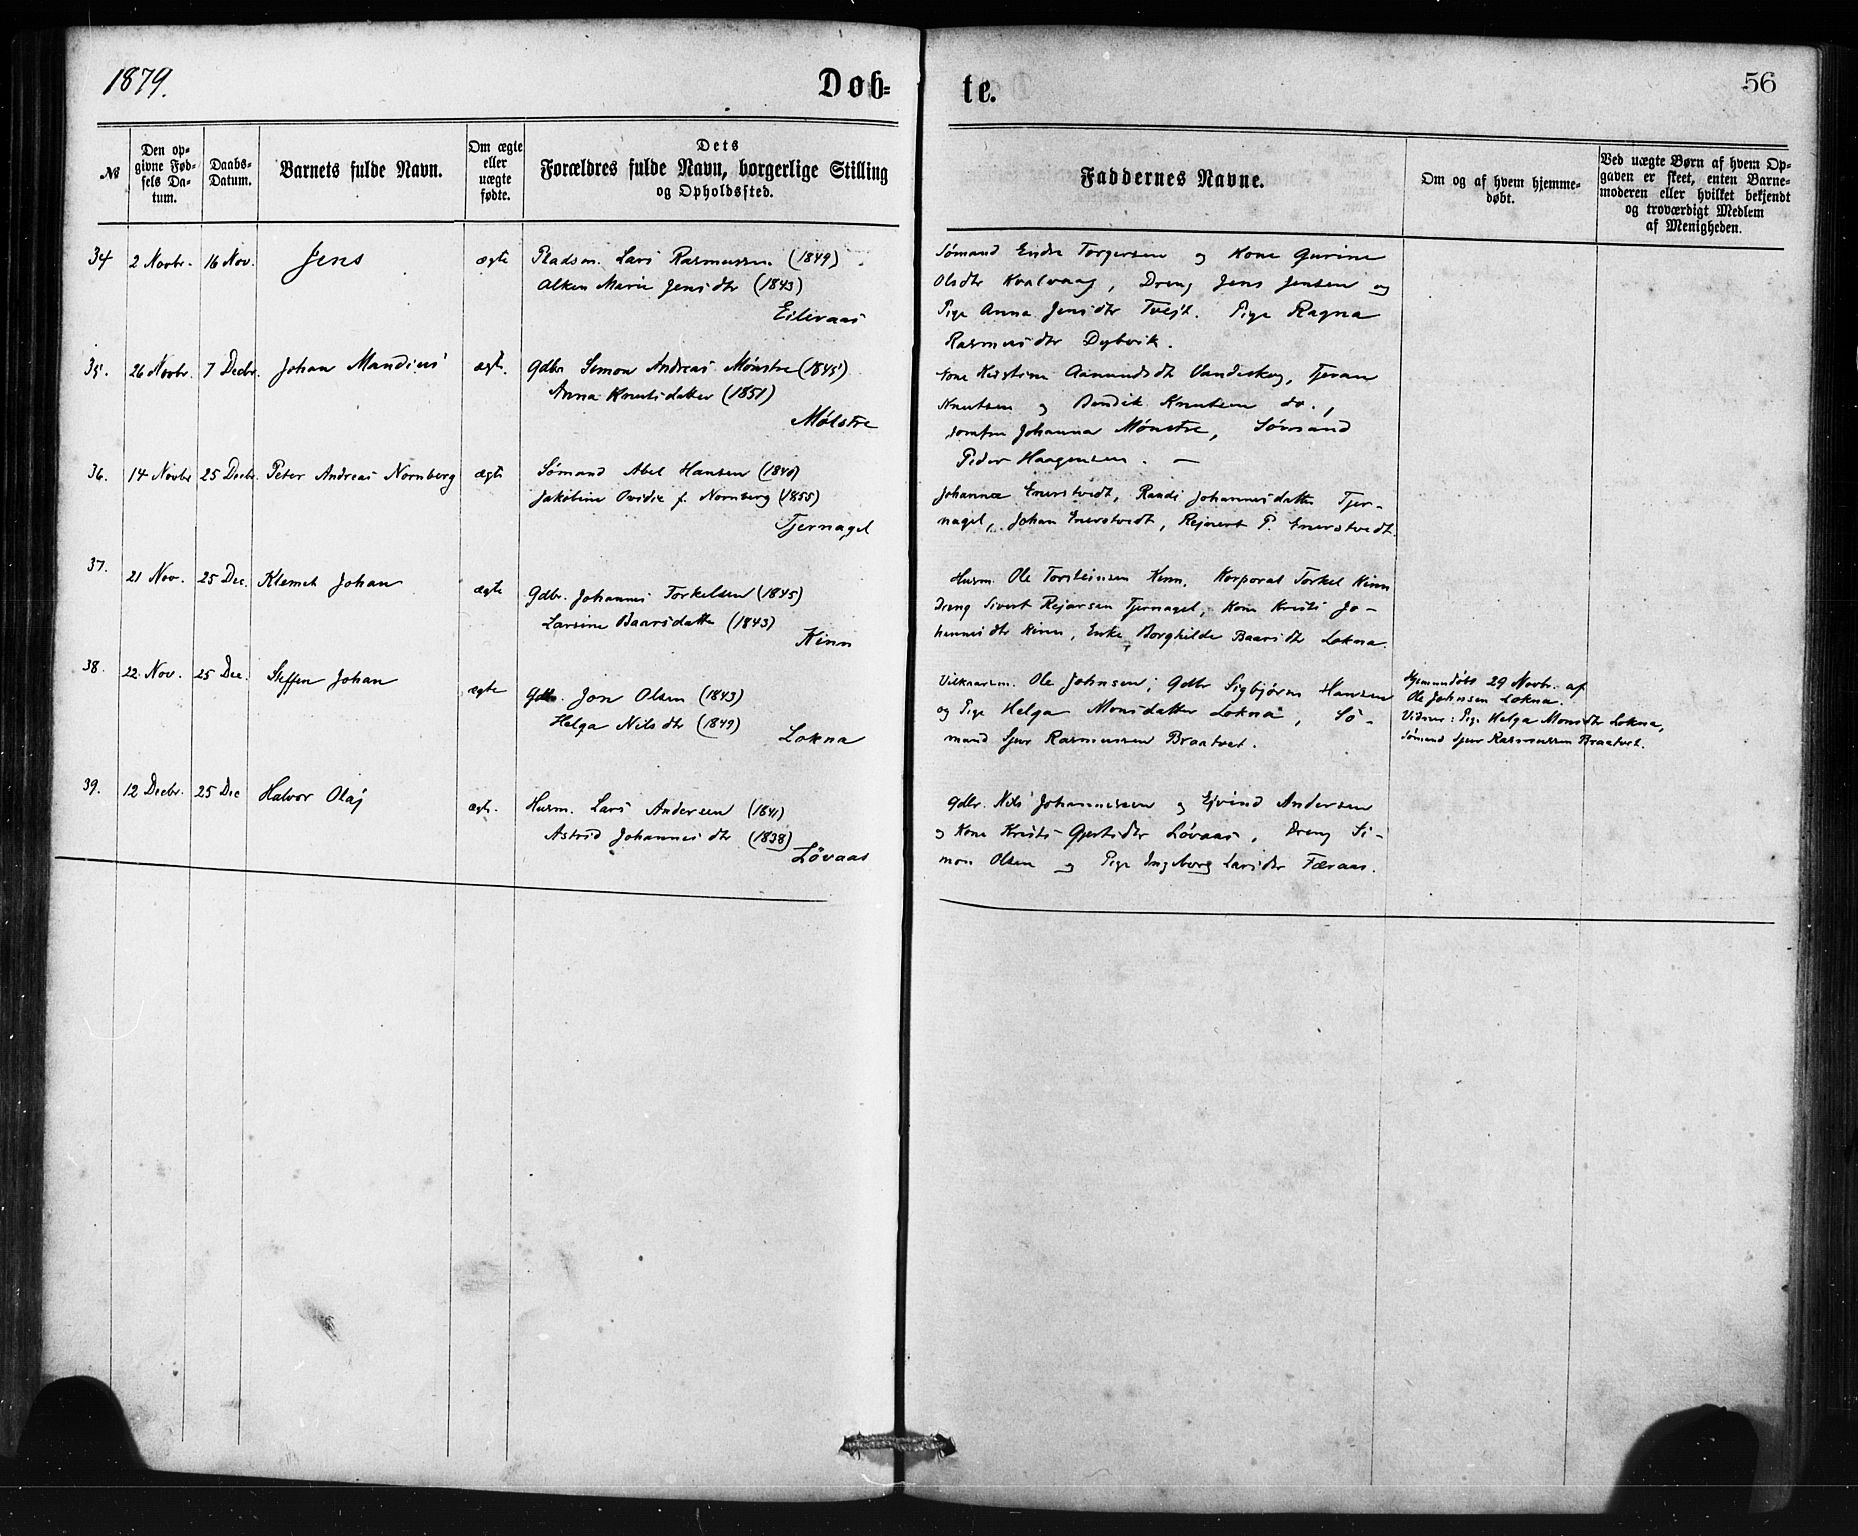 1879.
Døb=
te.
56
№
Den op-
givne Fød-
sels Da-
tum.
Daabs-
Datum.
Barnets fulde Navn.
Om ægte
eller
uægte
fødte.
Dets
Forældres fulde Navn, borgerlige Stilling
og Opholdssted.
Faddernes Navne.
Om og af hvem hjemme-
døbt.
Ved uægte Børn af hvem Op-
gaven er skeet, enten Barne-
moderen eller hvilket bekjendt
og troværdigt Medlem
af Menigheden.
34
2 Novbr.
16 Nov.
Jens
ægte
Pladsm. Lars Rasmussen (1849)
Alken Marie Jensdtr (1843)
Eilevaas
Sømand Endre Torgersen og Kone Gurine
Olsdtr Kvalvaag, Dreng Jens Jensen og
Pige Anna Jensdtr Tvejt. Pige Ragna
Rasmusdtr Dybvik.
35.
26 Novbr.
7 Decbr.
Johan Mandius
ægt.
Gdbr. Simon Andreas Mønstre (1845)
Anna Knutsdatter (1851)
Mølstre
Kone Kirstine Aamundsdt Vandeskog, Tjeran
Knutsen og Bendik Knutsen do.,
Jomfru Johanna Mønstre, Sømand
Peder Haagensen. —
36.
14 Novbr
25 Decbr.
Peter Andreas Nornberg
ægte
Sømand Abel Hansen (1840)
Jakobine Ovidie f. Nornberg (1855)
Tjernagel
Johannes Enerstvedt, Randi Johannesdatter Tjer-
nagel, Johan Enerstvedt, Rejnert P. Enerstvedt.
37.
21 Nov.
25 Dec.
Klemet Johan
ægte
Gdbr. Johannes Torkelsen (1845)
Larsine Baarsdatter (1843)
Kinn
Husm. Ole Torsteinsen Kinn, Korporal Torkel Kinn
Dreng Sivert Rejarsen Tjernagel, Kone Kristi Jo-
hannesdtr Kinn, Enke Borghilde Baarsdtr Lokna.
38.
22 Nov.
25 Dec.
Steffen Johan
ægte
Gdbr. Jon Olsen (1843)
Helga Nilsdtr (1849)
Lokna
Vilkaarsm. Ole Johnsen, Gdbr Sigbjørn Hansen
og Pige Helga Monsdatter Lokna, Sø-
mand Sjur Rasmussen Braatvet.
Hjemmedøbt 29 Novbr. af
Ole Johnsen Lokna.
Vidner: Pige Helga Monsdtr Lokna,
Sømand Sjur Rasmussen Braatvet.
39.
12 Decbr.
25 Dec
Halvor Olaj
ægt.
Husm. Lars Andersen (1841)
Astrid Johannesdtr (1838)
Løvaas
Gdbr. Nils Johannessen og Ejvind Andersen
og Kone Kristi Gjertsdtr Løvaas, Dreng Si-
mon Olsen og Pige Ingeborg Larsdtr Færaas.